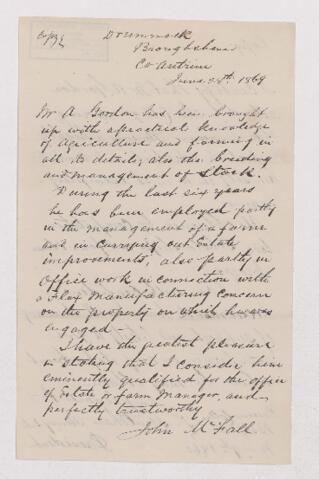 Copy
Drummock
Broughshane
Co Antrim
June 28th 1869
Mr A Gordon has been brought
up with a practical knowledge
of Agriculture and farming in
all its details, also the breeding
and management of Stock.
During the last six years
he has been employed partly
in the management of a farm
and in carrying out Estate
improvements, also partly in
Office work in connection with
a Flax Manufacturing Concern
on the property on which he was
engaged —
I have the greatest pleasure
in stating that I consider him
eminently qualified for the office
of Estate or farm Manager, and
perfectly trustworthy
John McFall